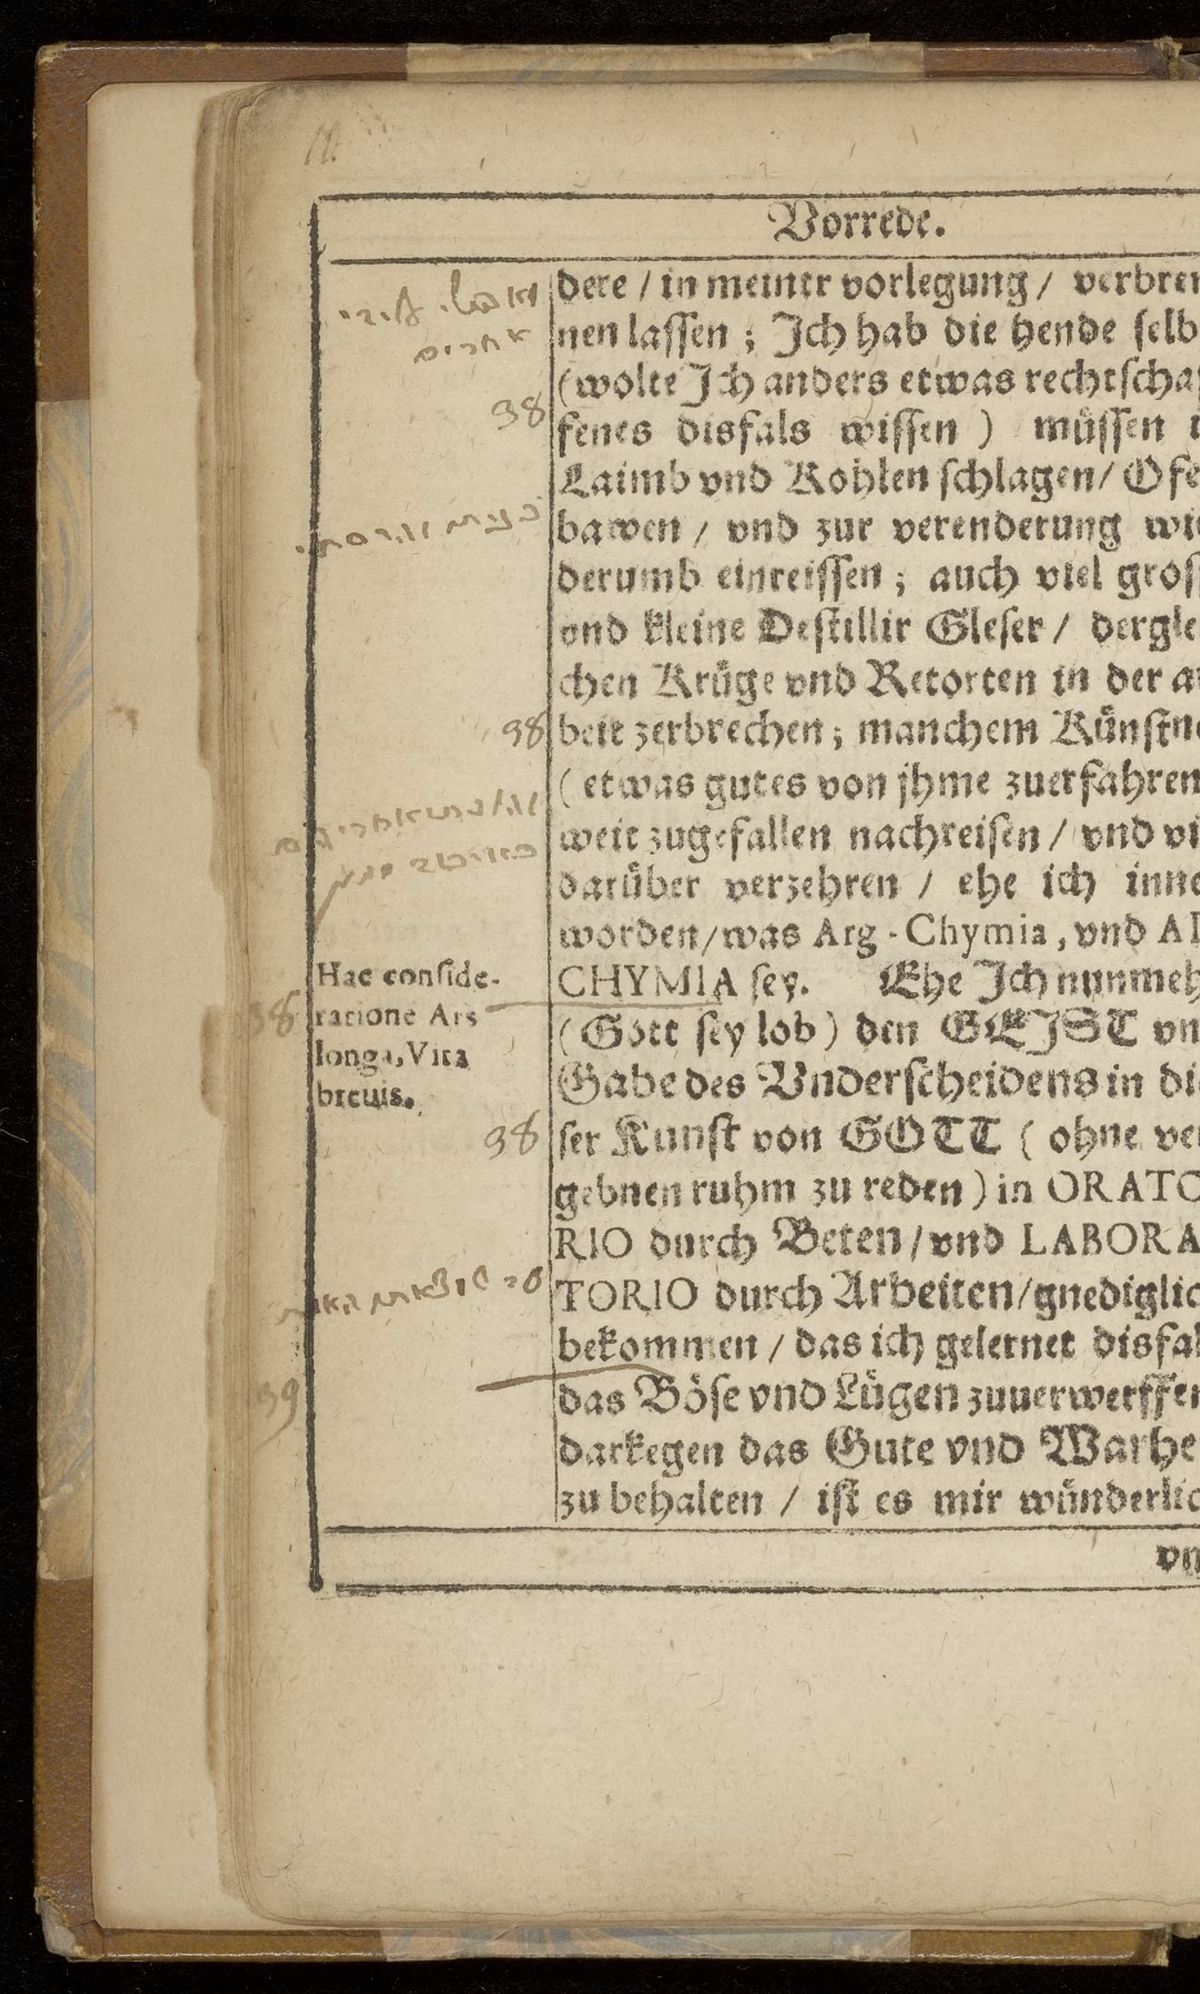 Vorrede.
dere / in meiner vorlegung / verbren
nen lassen ; Ich hab die hende selb
(wolte Ich anders etwas rechtscha
38
fenes disfals wissen ) müssen
Laimb vnd Kohlen schlagen / Ofe
bawen / vnd zur verenderung wi
derumb einreissen ; auch viel gros
vnd kleine Destillir Gleser / dergle
chen Krüge vnd Retorten in der a
38
beit zerbrechen ; manchem Künstn
( etwas gutes von jhme zuerfahren
weit zugefallen nachreisen / vnd vi
darüber verzehren / ehe ich inne
worden / was Arg - Chymia, vnd Al
CHYMIA sey. Ehe Ich nunmeh
( Gott sey lob ) den GEIST vn
Gabe des Vnderscheidens in di
ser Kunst von GOTT ( ohne ve
gebnen ruhm zu reden ) in ORATO
RIO durch Beten / vnd LABORA
TORIO durch Arbeiten / gnediglic
bekommen / das ich gelernet disfal
das Böse vnd Lügen zuuerwerffen
darkegen das Gute vnd Warhe
zu behalten / ist es mir wünderlic
vn
Hac conside-
38
ratione Ars
longa, Vita
breuis.
38
39